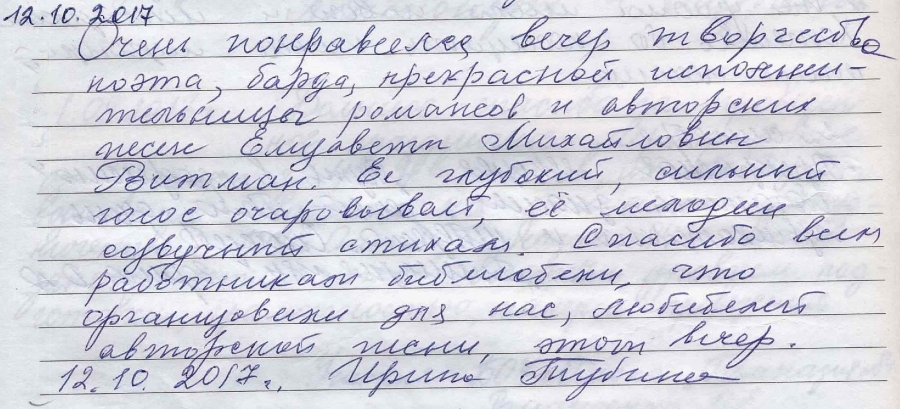 12.10.2017
Очень понравился вечер творчества
поэта, барда, прекрасной исполни-
тельницы романсов и авторских
песен Елизаветы Михайловны
Витман. Её глубокий, сильный
голос очаровывает, её мелодии
созвучны стихам. Спасибо всем
работникам библиотеки, что
организовали для нас, любителей
авторской песни, этот вечер.
12.10. 2017г., Ирина